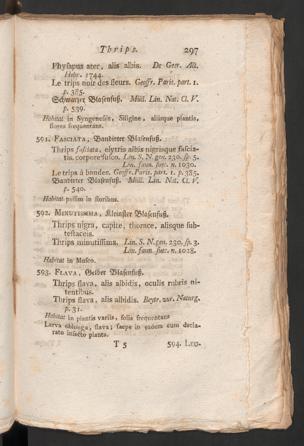 Thrips. 297
Physapus ater, alis albis. De Geer. Act.
Holm. 1744.
Le trips noir des fleurs. Geoffr. Paris. part. 1.
p. 385.
Schwarzer Blasenfuß. Müll. Lin. Nat. G. V.
p. 539.
Habitat in Syngenesiis, Siligine, aliisque plantis,
flores frequentans.
591. FASCIATA, Bandirter Blasenfuß.
Thrips fasciata, elytris albis nigrisque fascia-
tis, corpore fusco. Lin. S. N. gen. 230. sp. 5.
Lin. faun. suec. n. 1030.
Le trips à bandes. Geoffr. Paris. part. 1. p. 385.
Bandirter Blasenfuß. Müll. Lin. Nat. G. V.
p. 540.
Habitat passim in floribus.
592. MINUTISSIMA, Kleinster Blasenfuß.
Thrips nigra, capite, thorace, alisque sub-
testaceis.
Thrips minutissima. Lin. S. N. gen. 230. sp. 3.
Lin. faun. suec. n. 1028.
Habitat in Museo.
593. FLAVA, Gelber Blasenfuß.
Thrips flava, alis albidis, oculis rubris ni-
tentibus.
Thrips flava, alis albidis. Beytr. zur. Naturg.
p. 31.
Habitat in plantis variis, folia frequentans
Larva oblonga, flava; saepe in eadem cum decla-
rato insecto planta.
T 5 594. Leu-